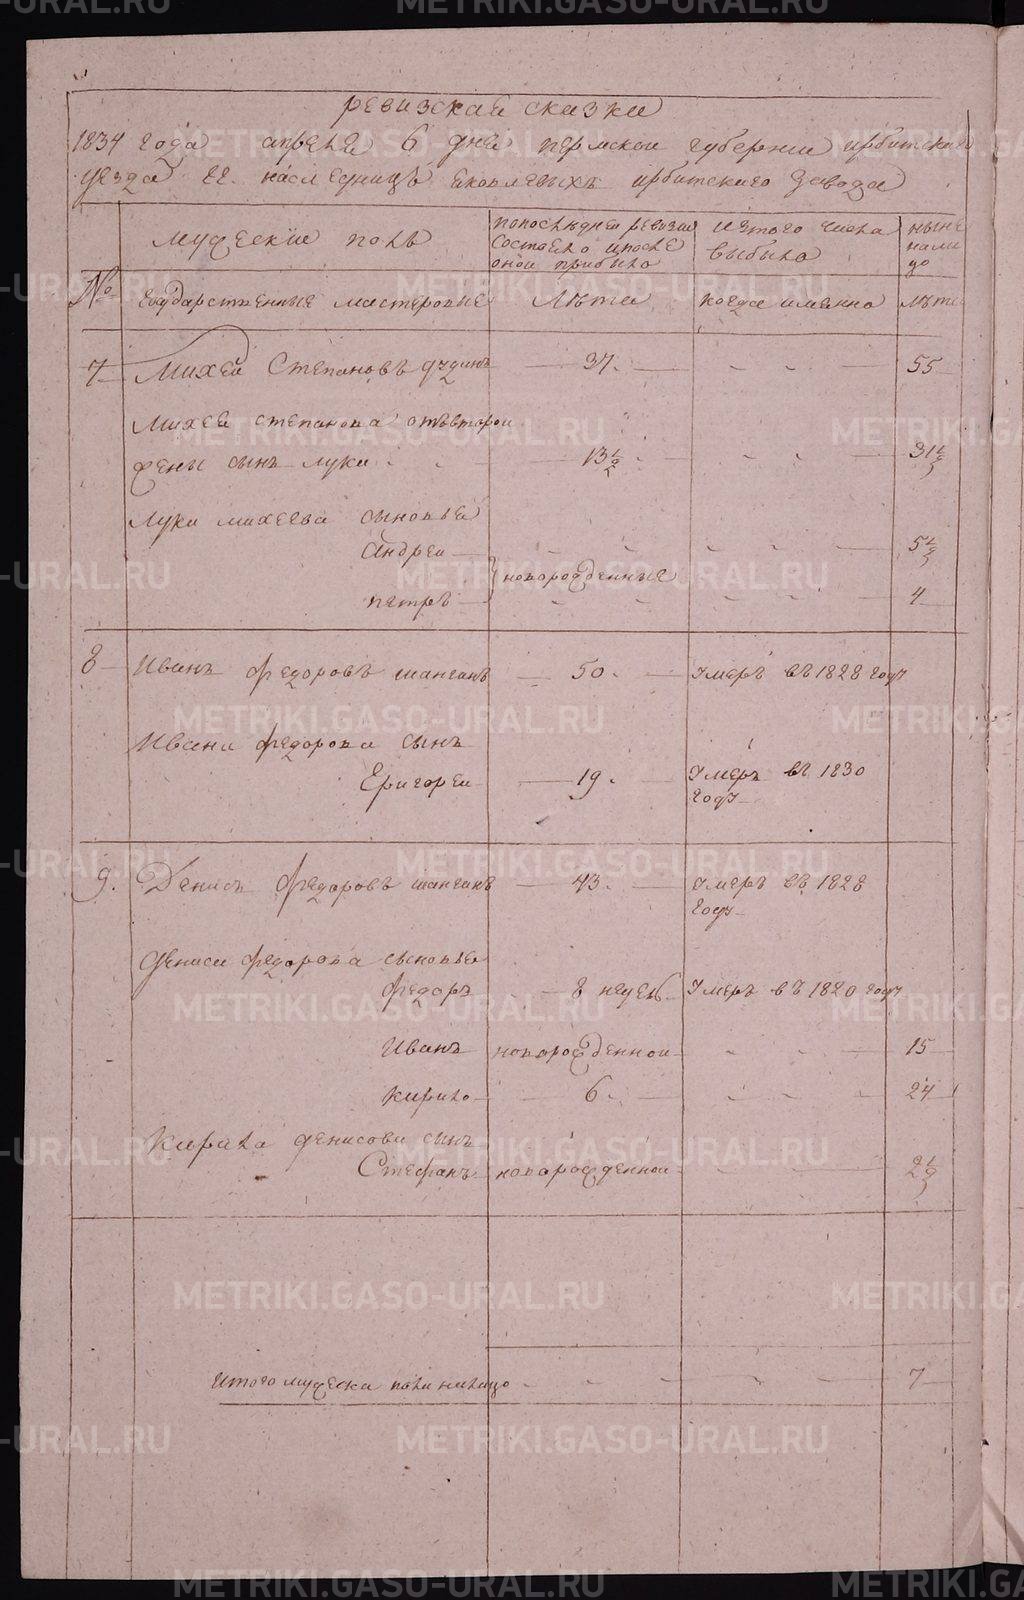 ревизская сказка
1834 года апреля 6 дня пермской губернии ирбитскаго
уезда гг. наследницъ яковлевыхъ ирбитскаго завода
мужеский полъ
по последней ревизии
состояло и после
оной прибыло
из того числа
выбыло
ныне
на ли
цо
№
государственные мастеровые
Лѣта
когда имянно
лѣта
7 Михей Степановъ дудинъ 37. 55
Михея степанова отъ второй
жены сынъ лука 13 1/2 31 1/2
луки михеева сыновья
Андрей 5 1/2
новорожденные
петръ 4
8 Иванъ федоровъ шанганъ 50. умеръ въ 1828 году
Ивана федорова сынъ
Григорей 19. умеръ въ 1830
году
9. Денисъ федоровъ шанганъ 43. умеръ въ 1828
году
дениса федорова сыновья
федоръ 8 недель умеръ въ 1820 году
Иванъ новорожденной 15
кирило 6. 24
Кирила денисова сынъ
Стефанъ новорожденной 2 1/2
итого мужеска пола налицо 7
METRIKI.GASO-URAL.RU